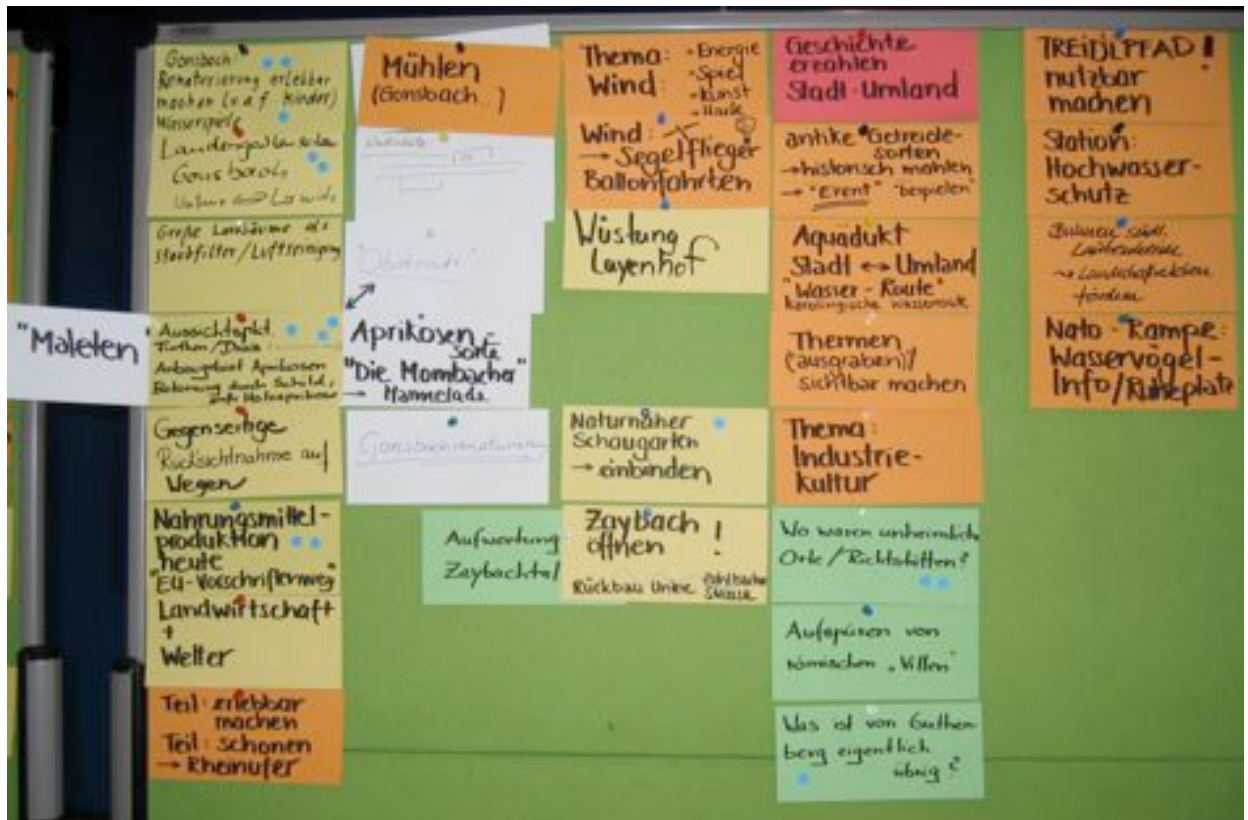 Gonsbach:
Renaturierung erlebbar
machen (v.a. f. Kinder)
Wasserspiele
Gonsbach
Große Laubbäume als
Staubfilter/Luftreinigung
"Maleten"
Aussichtspkt.
Anbaugebiet Aprikosen
Gegenseitige
Rücksichtnahme auf
Wegen
Nahrungsmittel-
produktion
heute
"EU-Vorschriftenweg"
Landwirtschaft
+
Wetter
Teil: erlebbar
machen
Teil: schonen
→ Rheinufer
Mühlen
(Gonsbach )
Aprikosen-
sorte
"Die Mombacher"
→ Marmelade
Gonsbachrenaturierung
Aufwertung
Zaybachtal
Thema:
Wind:
• Energie
• Spiel
• Kunst
Wind:
→ Segelflieger
Ballonfahrten
Wüstung
Layenhof
Naturnaher
Schaugarten
→ einbinden
Zaybach
öffnen !
Rückbau Untere Zahlbacher
Strasse
Geschichte
erzählen
Stadt-Umland
antike Getreide-
sorten
→ historisch mahlen
→ "Event" "bespielen"
Aquädukt
Stadt ↔ Umland
"Wasser-Route"
Karolingische Wasserroute
Thermen
(ausgraben)/
sichtbar machen
Thema:
Industrie-
kultur
Wo waren unheimlich
Orte/Richtstätten?
Aufspüren von
römischen "Villen"
Was ist von Guthen
berg eigentlich
übrig?
TREIDLPFAD!
nutzbar
machen
Station:
Hochwasser-
schutz
fördern
Nato-Rampe:
Wasservögel-
Info/Ruheplatz